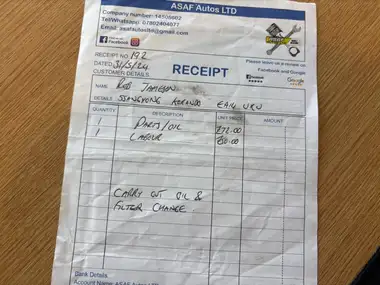 ASAF Autos LTD
Company number: 14506602
Tel/Whatsapp: 07802404077
Email: asafautosltd@gmail.com
Facebook
Please leave us a review on
Facebook and Google
RECEIPT NO. 192
DATED 31/5/24
RECEIPT
Facebook
Google
CUSTOMER DETAILS
NAME ROB JAMESON
DETAILS SSANGYONG KORANDO EA14 URV
QUANTITY DESCRIPTION UNIT PRICE AMOUNT
1 PARTS/OIL £72.00
1 LABOUR
CARRY OUT OIL &
FILTER CHANGE
Bank Details
Account Name: ASAF Autos LTD